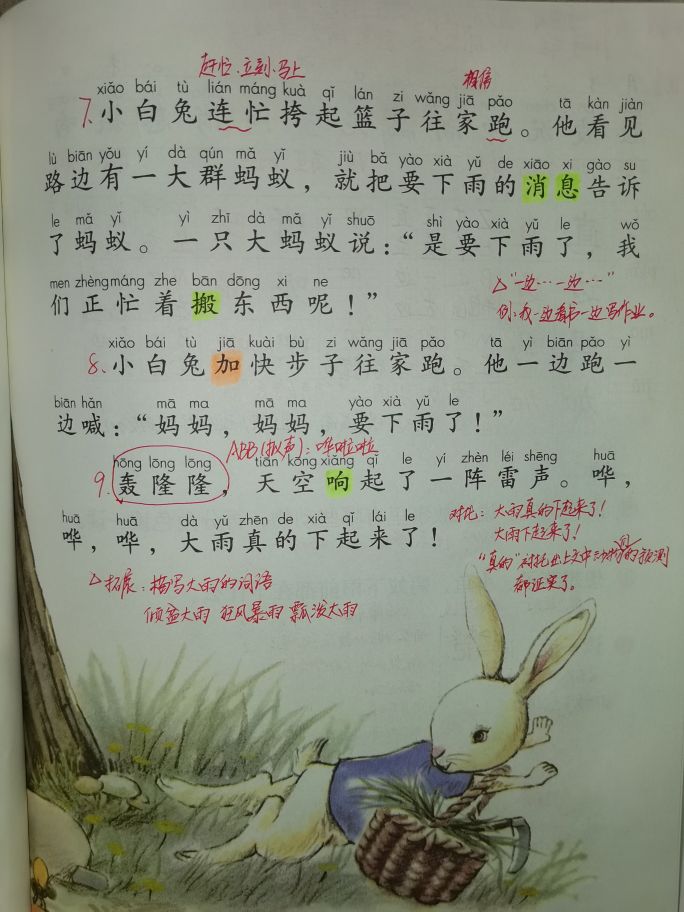 赶忙、立刻、马上
xiǎo bái tù lián máng kuà qǐ lán zi wǎng jiā pǎo tā kàn jiàn
7.小白兔连忙挎起篮子往家跑。他看见
lù biān yǒu yí dà qún mǎ yǐ jiù bǎ yào xià yǔ de xiāo xi gào su
路边有一大群蚂蚁，就把要下雨的消息告诉
le mǎ yǐ yì zhī dà mǎ yǐ shuō shì yào xià yǔ le wǒ
了蚂蚁。一只大蚂蚁说：“是要下雨了，我
men zhèng máng zhe bān dōng xi ne
们正忙着搬东西呢！”
△“一边…一边…”
例：我一边看书一边写作业。
xiǎo bái tù jiā kuài bù zi wǎng jiā pǎo tā yì biān pǎo yì
8.小白兔加快步子往家跑。他一边跑一
biān hǎn mā ma mā ma yào xià yǔ le
边喊：“妈妈，妈妈，要下雨了！”
ABB(拟声)：哗啦啦
hōng lōng lōng tiān kōng xiǎng qǐ le yí zhèn léi shēng huā
9.轰隆隆，天空响起了一阵雷声。哗，
huā huā dà yǔ zhēn de xià qǐ lái le
哗，哗，大雨真的下起来了！
对比：大雨真的下起来了！
大雨下起来了！
“真的”衬托出上文中动物们的预测
都证实了。
△拓展：描写大雨的词语
倾盆大雨 狂风暴雨 瓢泼大雨